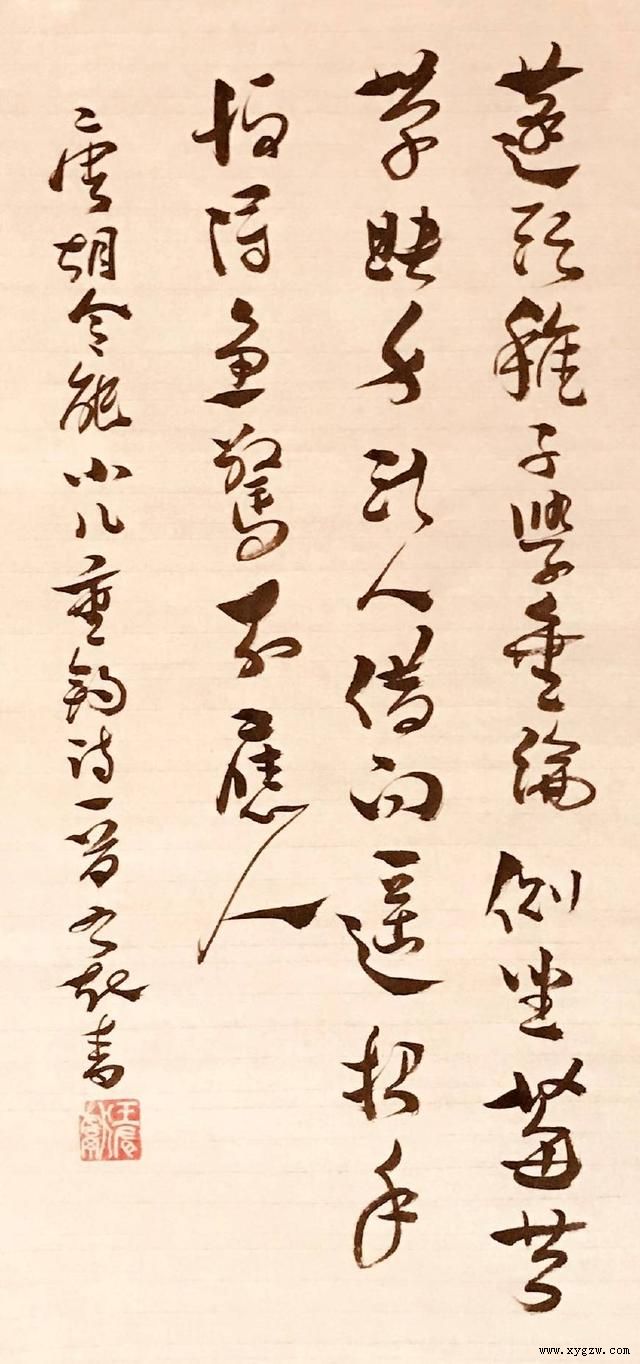 蓬头稚子學垂綸側坐莓苔
草映身路人借问遥招手
怕得鱼驚不應人
唐胡令能小儿垂钓诗一首书
www.xygzw.com